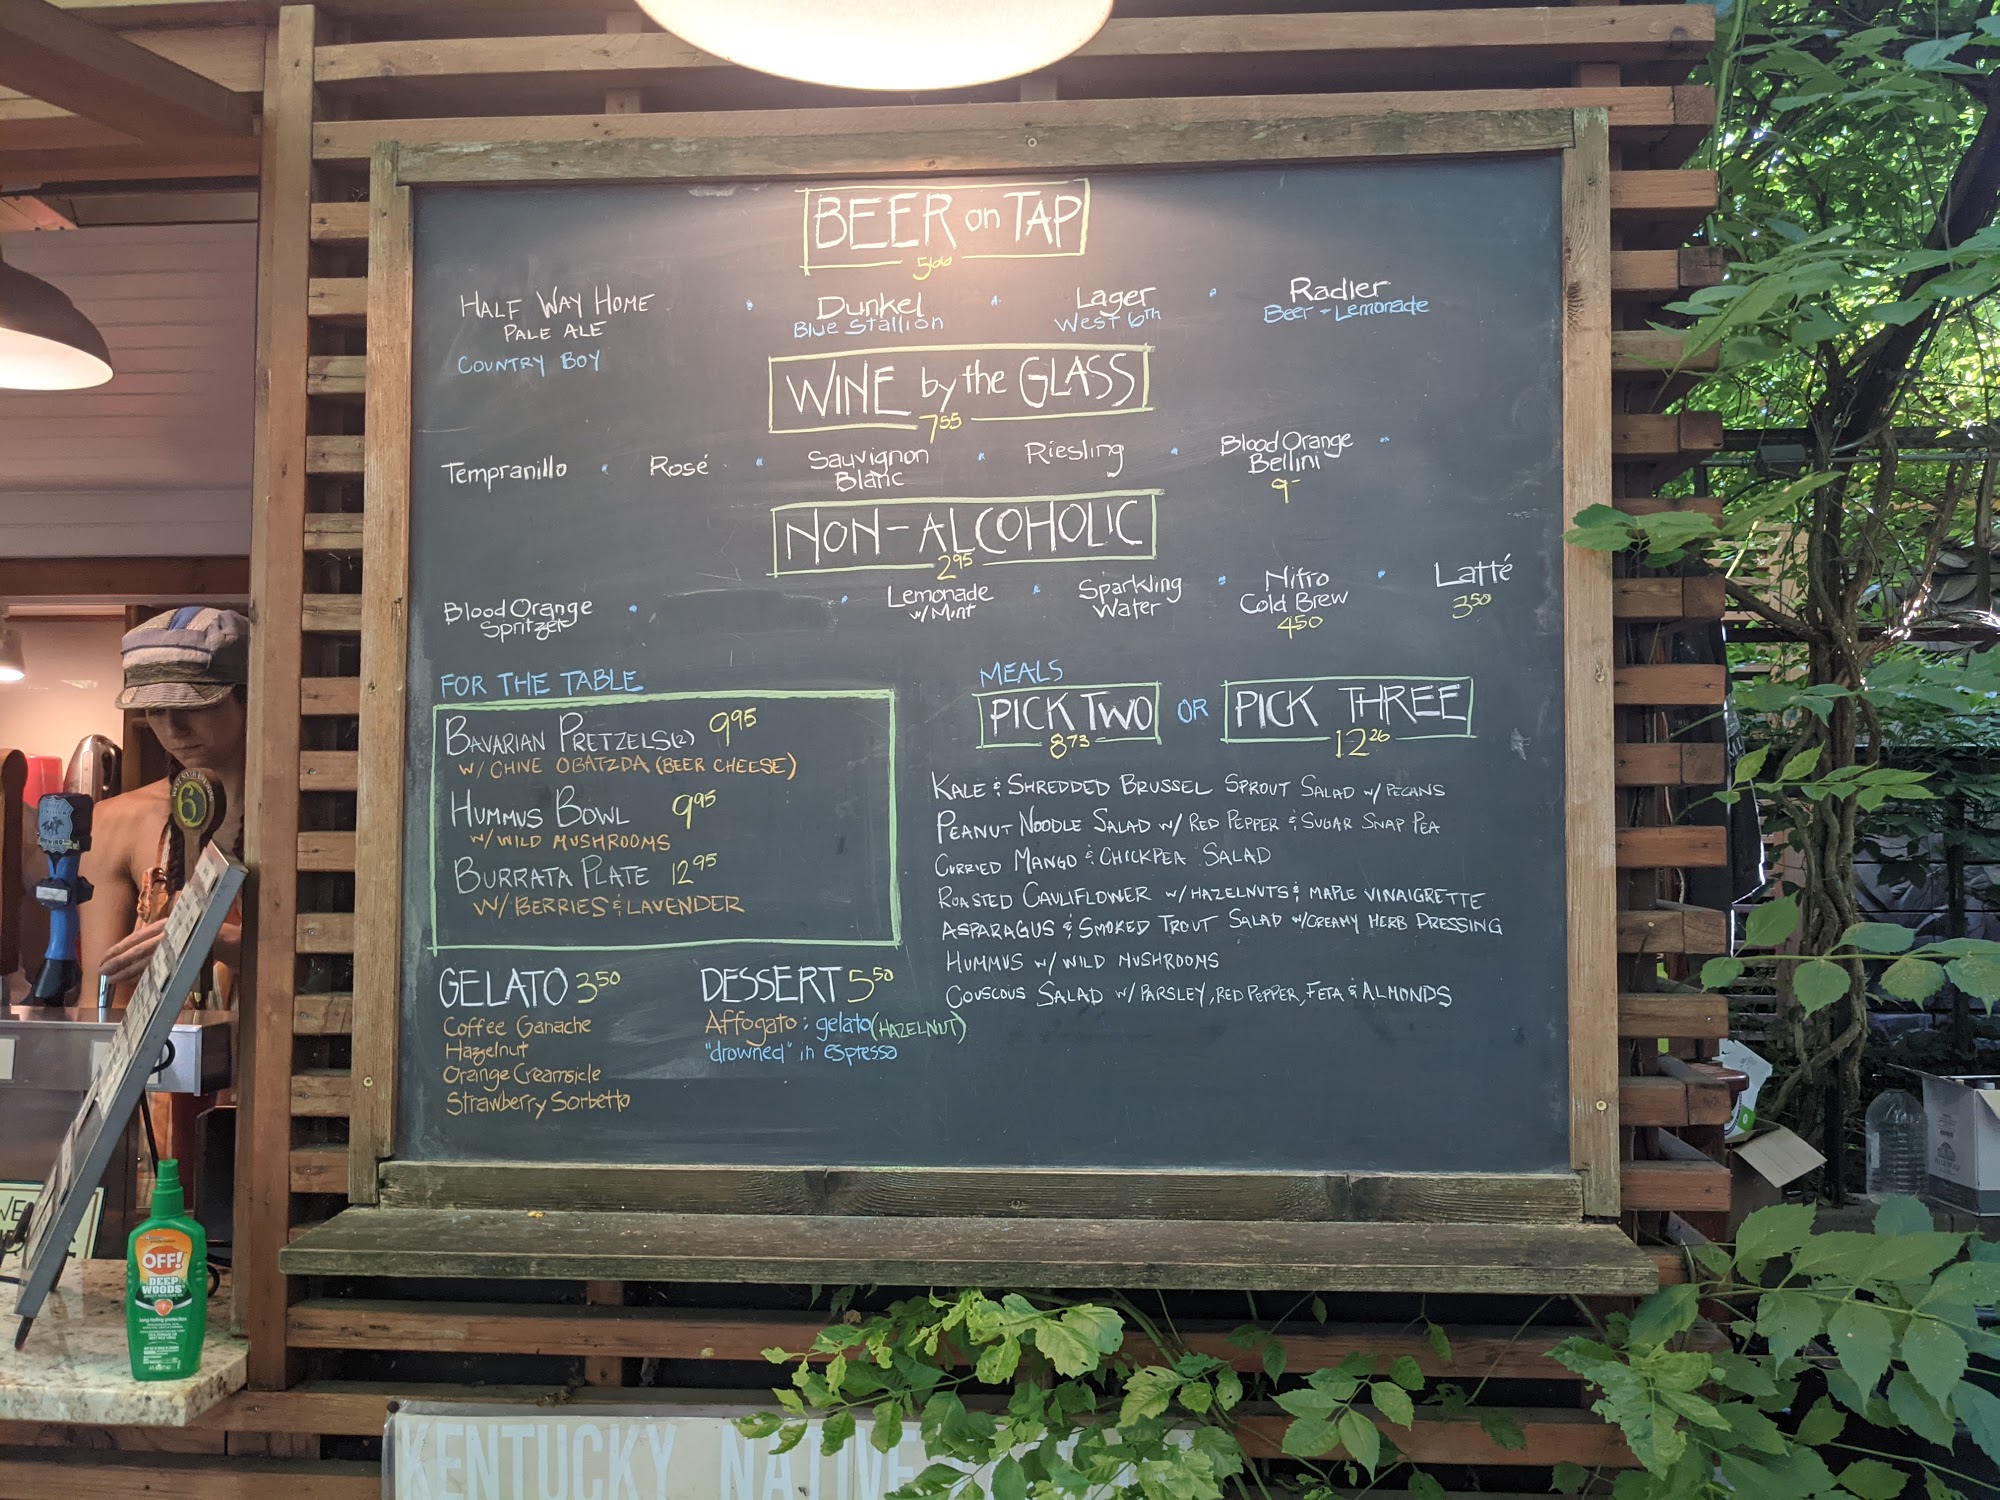 BEER on TAP
5.00
HALF WAY HOME
PALE ALE
COUNTRY BOY
Dunkel
Blue Stallion
Lager
West 6th
Radler
Beer + Lemonade
WINE by the GLASS
7.55
Tempranillo
Rosé
Sauvignon
Blanc
Riesling
Blood Orange
Bellini
9-
NON-ALCOHOLIC
2.95
Blood Orange
Spritzer
Lemonade
w/Mint
Sparkling
Water
Nitro
Cold Brew
4.50
Latté
3.50
FOR THE TABLE
BAVARIAN PRETZELS(2) 9.95
W/ CHIVE OBATZDA (BEER CHEESE)
HUMMUS BOWL 9.95
W/ WILD MUSHROOMS
BURRATA PLATE 12.95
W/ BERRIES & LAVENDER
GELATO 3.50
Coffee Ganache
Hazelnut
Orange Creamsicle
Strawberry Sorbetto
DESSERT 5.50
Affogato: gelato (HAZELNUT)
"drowned" in espresso
MEALS
PICK TWO OR PICK THREE
8.73 12.26
KALE & SHREDDED BRUSSEL SPROUT SALAD w/ PECANS
PEANUT NOODLE SALAD w/ RED PEPPER & SUGAR SNAP PEA
CURRIED MANGO & CHICKPEA SALAD
ROASTED CAULIFLOWER w/ HAZELNUTS & MAPLE VINAIGRETTE
ASPARAGUS & SMOKED TROUT SALAD w/CREAMY HERB DRESSING
HUMMUS w/ WILD MUSHROOMS
COUSCOUS SALAD w/ PARSLEY, RED PEPPER, FETA & ALMONDS
6
OFF!
DEEP
WOODS
long lasting protection
KENTUCKY NATIVE